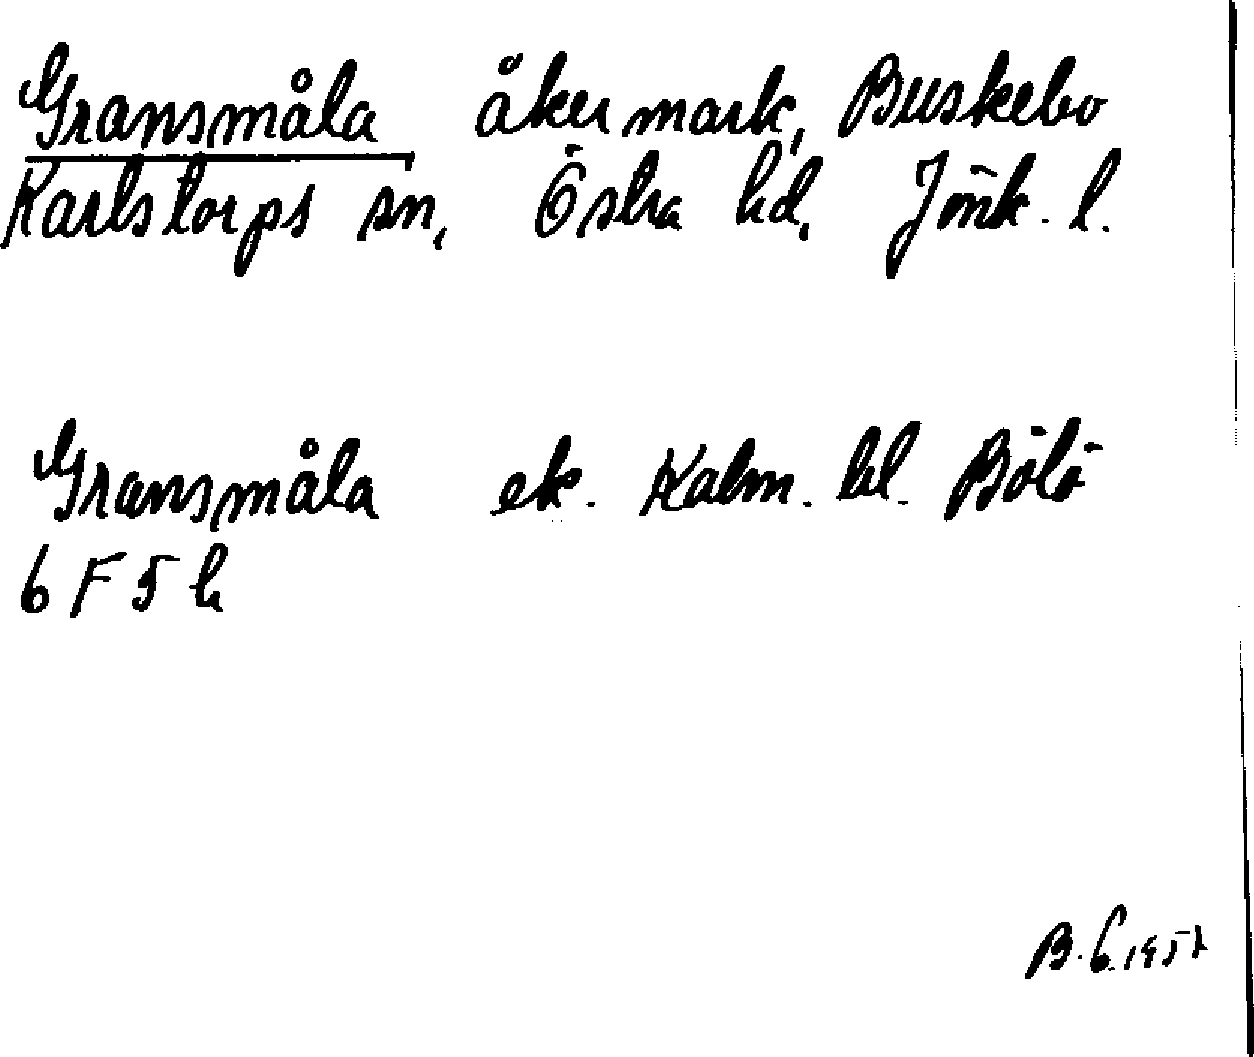 Gransmåla, åkermark, Buskebo
Karlstorps sn, Östra hd, Jönk. l.
Gransmåla ek. Kalm. bl. Bölö
6 F 5 h